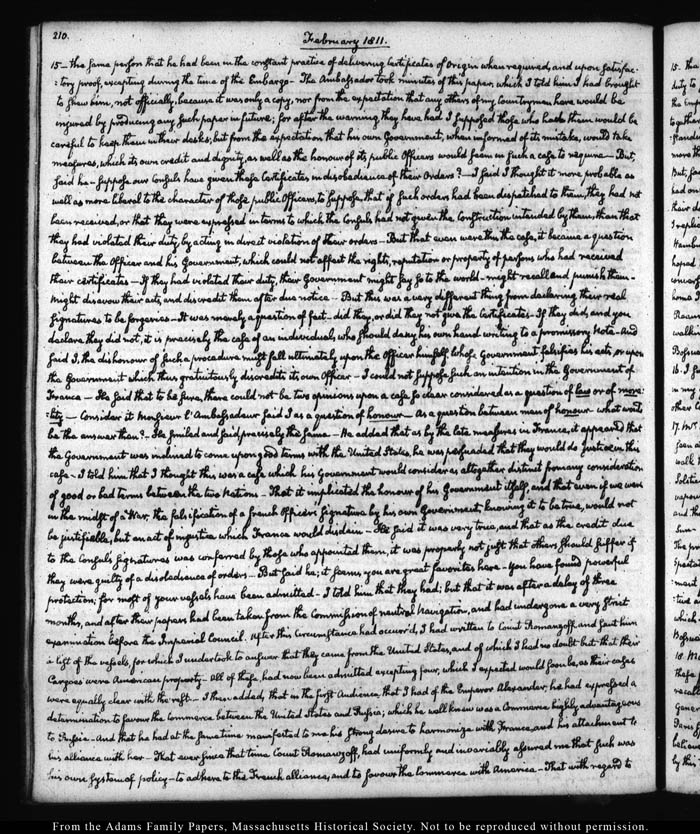 210.
February 1811.
15— the same person that he had been in the constant practice of delivering Certificates of Origin when required, and upon satisfac-
:tory proof, excepting during the time of the Embargo— The Ambassador took minutes of this paper, which I told him I had brought
to shew him, not officially, because it was only a copy, nor from the expectation that any others of my Countrymen have would be
injured by producing any such paper in future; for after the warning they have had I supposed those who hath them would be
careful to keep them in their desks; but from the expectation that his own Government, when informed of its mistake, would take
measures, which its own credit and dignity, as well as the honour of its public Officers would seem in such a case to require— But,
said he— Suppose our Consuls have given these Certificates in disobedience of their Orders?— I said I thought it more probable as
well as more liberal to the character of those public Officers, to suppose, that if such orders had been dispatched to them, they had not
been received, or that they were expressed in terms to which the Consuls had not given the Construction intended by them, than that
they had violated their duty, by acting in direct violation of their orders— But that even were this the case, it became a question
between the Officer and his Government, which could not affect the rights, reputation or property of persons who had received
their certificates— If they had violated their duty, their Government might say so to the world— might recall and punish them—
might disavow their acts, and discredit them after due notice— But this was a very different thing from declaring their real
signatures to be forgeries— It was merely a question of fact— did they, or did they not give the Certificates— If they did, and you
declare they did not, it is precisely the case of an individual who should deny his own hand writing to a promissory Note— And
said I, the dishonour of such a procedure must fall ultimately upon the Officer himself whose Government falsifies his acts, or upon
the Government which thus gratuitously discredits its own Officer— I could not suppose such an intention in the Government of
France— He said that to be sure, there could not be two opinions upon a case so clear considered as a question of law or of mora-
:lity— Consider it Monsieur l'Ambassadeur said I as a question of honour— As a question between men of honour— what would
be the answer then?— He smiled and said precisely the same— He added that as by the late measures in France, it appeared that
the Government was inclined to come upon good terms with the United States, he was persuaded that they would do justice in this
case— I told him that I thought this was a case which his Government would consider as altogether distinct from any consideration
of good or bad terms between the two Nations— That it implicated the honour of his Government itself, and that even if we were
in the midst of a War, the falsification of a french Officer's signature by his own Government knowing it to be true, would not
be justifiable, but an act of injustice which France would disdain— He said it was very true, and that as the credit due
to the Consuls signatures was conferred by those who appointed them, it was properly not just that others should suffer if
they were guilty of a disobedience of orders— But said he; it seems, you are great favorites here— You have found powerful
protection; for most of your vessels have been admitted— I told him that they had; but that it was after a delay of three
months, and after their papers had been taken from the Commission of neutral Navigation, and had undergone a very strict
examination before the Imperial Council. After this circumstance had occurr'd, I had written to Count Romanzoff and sent him
a list of the vessels for which I undertook to answer that they came from the United States, and of which I had no doubt but that their
Cargoes were American property— All of these, had now been admitted excepting four, which I expected would soon be, as their cases
were equally clear with the rest— I then added, that in the first Audience, that I had of the Emperor Alexander, he had expressed a
determination to favour the Commerce between the United States and Russia; which he well knew was a Commerce highly advantageous
to Russia— And that he had at the same time manifested to me his strong desire to harmonize with France, and his attachment to
his alliance with her— That ever since that time Count Romanzoff, had uniformly and invariably assured me that such was
his own system of policy— to adhere to the French alliance, and to favour the Commerce with America— That with regard to
From the Adams Family Papers, Massachusetts Historical Society. Not to be reproduced without permission.